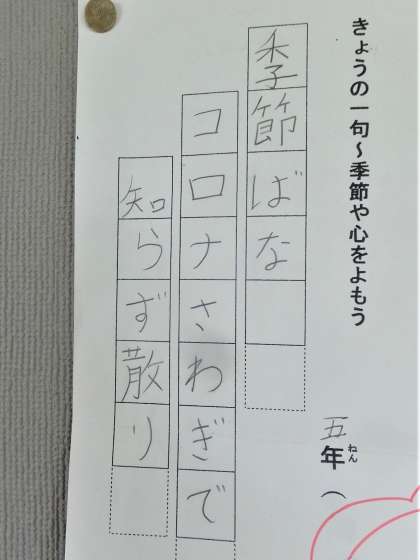 きょうの一句～季節や心をよもう
五年（
ねん
季節ばな
コロナさわぎで
知らず散り